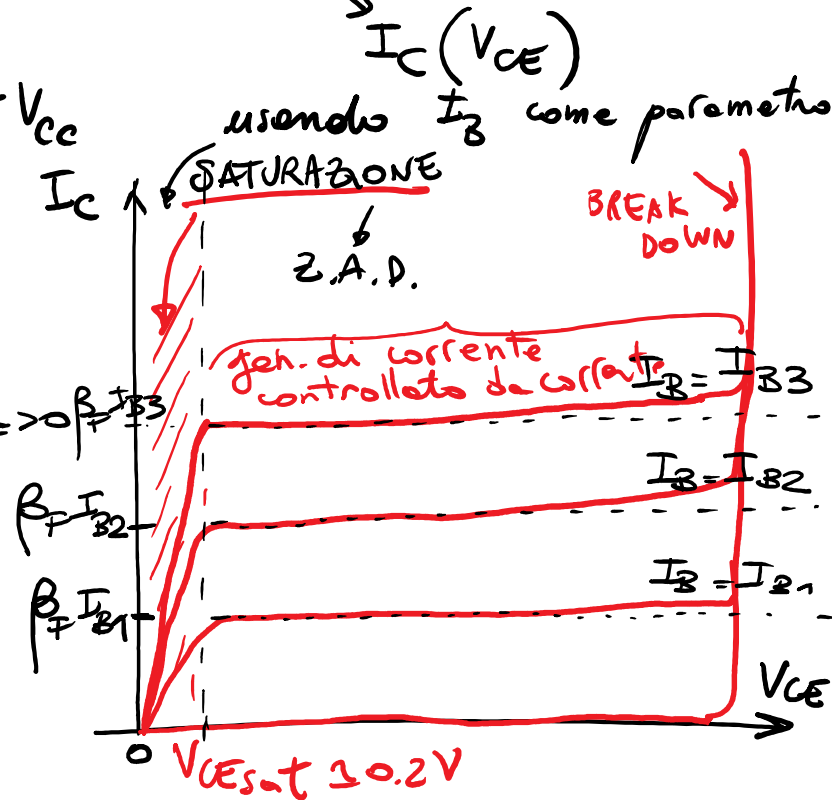 I_C (V_CE)
V_CC
usando I_B come parametro
I_C
SATURAZIONE
BREAK
DOWN
Z.A.D.
gen. di corrente
controllato da corrente
I_B = I_B3
=>0 β_F I_B3
I_B = I_B2
β_F I_B2
I_B = I_B1
β_F I_B1
V_CE
0
V_CEsat ≃ 0.2V